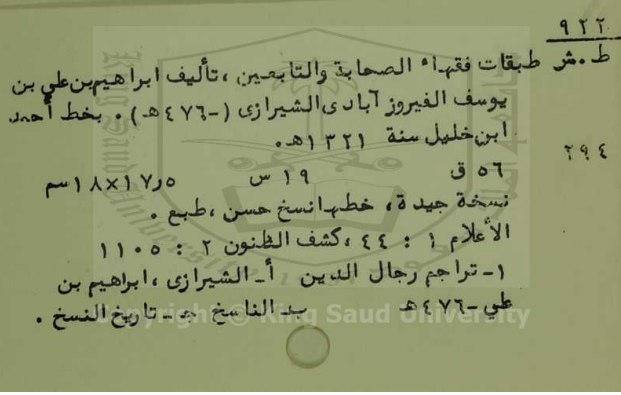 ٩٢٢
ط.ش طبقات فقهاء الصحابة والتابعين ، تأليف ابراهيم بن علي بن
يوسف الفيروز آبادى الشيرازى (-٤٧٦هـ) . بخط أحمد
ابن خليل سنة ١٣٢١هـ.
٢٩٤
٥٦ ق ١٩ س ١٧٫٥×١٨سم
نسخة جيدة ، خطها نسخ حسن ، طبع .
الأعلام ١ : ٤٤ ، كشف الظنون ٢ : ١١٠٥
١- تراجم رجال الدين أ- الشيرازى ، ابراهيم بن
علي -٤٧٦هـ ب- الناسخ جـ - تاريخ النسخ .
Copyright © King Saud University